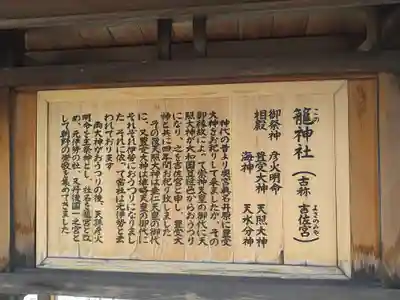 籠神社(古称 吉佐宮)
この
よさのみや
御祭神 彦火明命
相殿 豊受大神 天照大神
海神 天水分神
神代の昔より奥宮眞名井原に豊受
大神をお祀りして来ましたが、その
御縁故によって崇神天皇の御代に天
照大神が大和国笠縫邑からおうつり
になり、之を吉佐宮と申し、豊受大
神と共に四年間お祀り致しました。
その後天照大神は垂仁天皇の御代
に、又豊受大神は雄略天皇の御代に
それぞれ伊勢におうつりになりまし
た。それに依って當社は元伊勢と云
われております。
両大神がおうつりの後、天孫彦火
明命を主祭神とし、社名を籠宮と改
め、元伊勢の社、又丹後国一之宮と
して朝野の崇敬を集めてきました。